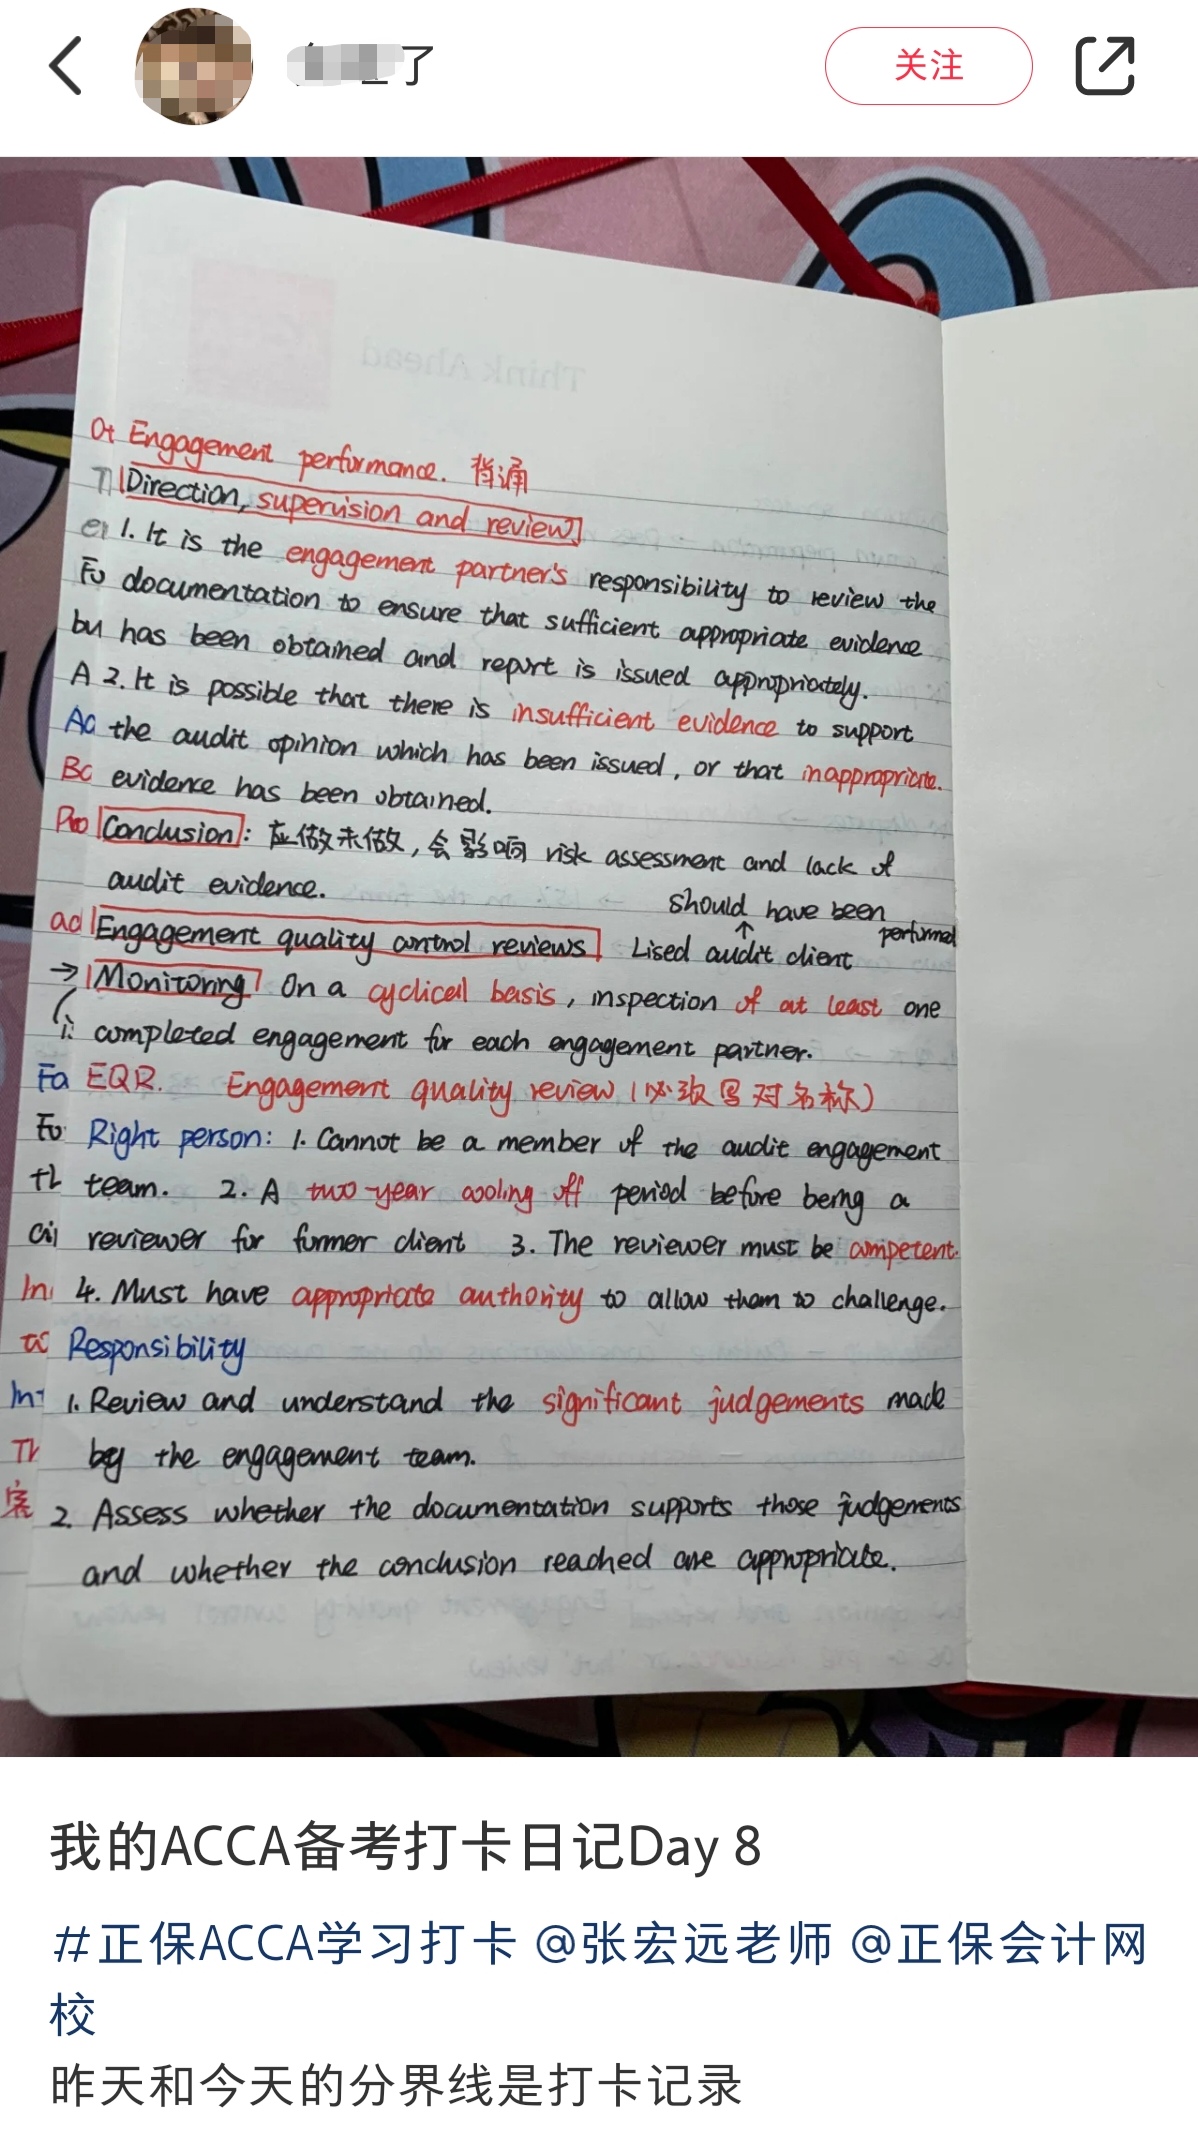 了
关注
Think Ahead
Engagement performance. 背诵
Direction, supervision and review
1. It is the engagement partner's responsibility to review the
documentation to ensure that sufficient appropriate evidence
has been obtained and report is issued appropriately.
2. It is possible that there is insufficient evidence to support
the audit opinion which has been issued, or that inappropriate.
evidence has been obtained.
Conclusion: 应做未做,会影响 risk assessment and lack of
audit evidence.
should have been performed
Engagement quality control reviews Lised audit client
Monitoring On a cyclical basis, inspection of at least one
completed engagement for each engagement partner.
EQR. Engagement quality review (必须写对名称)
Right person: 1. Cannot be a member of the audit engagement
team. 2. A two-year cooling off period before being a
reviewer for former client 3. The reviewer must be competent.
4. Must have appropriate authority to allow them to challenge.
Responsibility
1. Review and understand the significant judgements made
by the engagement team.
2. Assess whether the documentation supports those judgements
and whether the conclusion reached are appropriate.
我的ACCA备考打卡日记Day 8
#正保ACCA学习打卡 @张宏远老师 @正保会计网
校
昨天和今天的分界线是打卡记录